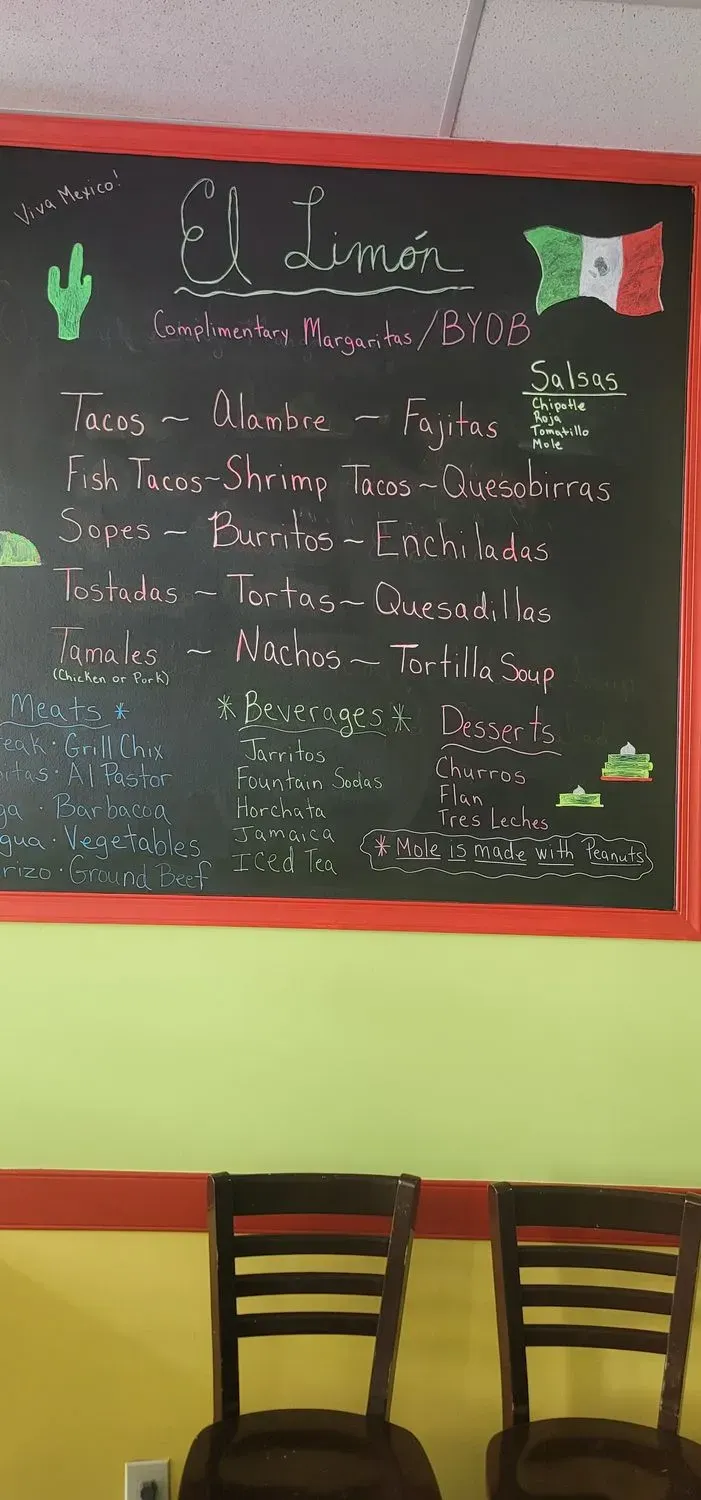 Viva Mexico!
El Limón
Complimentary Margaritas / BYOB
Salsas
Chipotle
Roja
Tomatillo
Mole
Tacos ~ Alambre ~ Fajitas
Fish Tacos ~ Shrimp Tacos ~ Quesobirras
Sopes ~ Burritos ~ Enchiladas
Tostadas ~ Tortas ~ Quesadillas
Tamales ~ Nachos ~ Tortilla Soup
(Chicken or Pork)
Meats *
eak · Grill Chix
itas · Al Pastor
ga · Barbacoa
gua · Vegetables
rizo · Ground Beef
* Beverages *
Jarritos
Fountain Sodas
Horchata
Jamaica
Iced Tea
Desserts
Churros
Flan
Tres Leches
* Mole is made with Peanuts